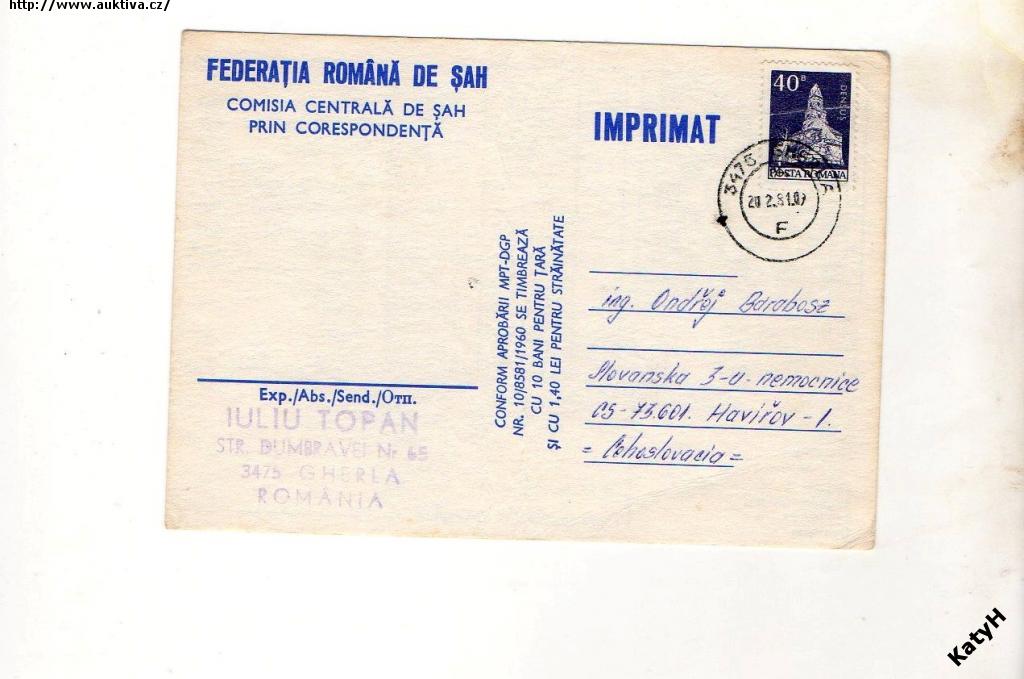 http://www.auktiva.cz/
FEDERAȚIA ROMÂNĂ DE ȘAH
COMISIA CENTRALĂ DE ȘAH
PRIN CORESPONDENȚĂ
IMPRIMAT
40 B
DENSUȘ
POSTA ROMANA
3475
20.2.81.07
F
CONFORM APROBĂRII MPT-DGP
NR. 10/8581/1960 SE TIMBREAZĂ
CU 10 BANI PENTRU ȚARĂ
ȘI CU 1,40 LEI PENTRU STRĂINĂTATE
ing. Ondřej Barabosz
Slovanska 3-u-nemocnice
CS-73601. Havířov-1.
= Cehoslovacia =
Exp./Abs./Send./Отп.
IULIU TOPAN
STR. DUMBRAVEI Nr 65
3475 GHERLA
ROMÂNIA
KatyH